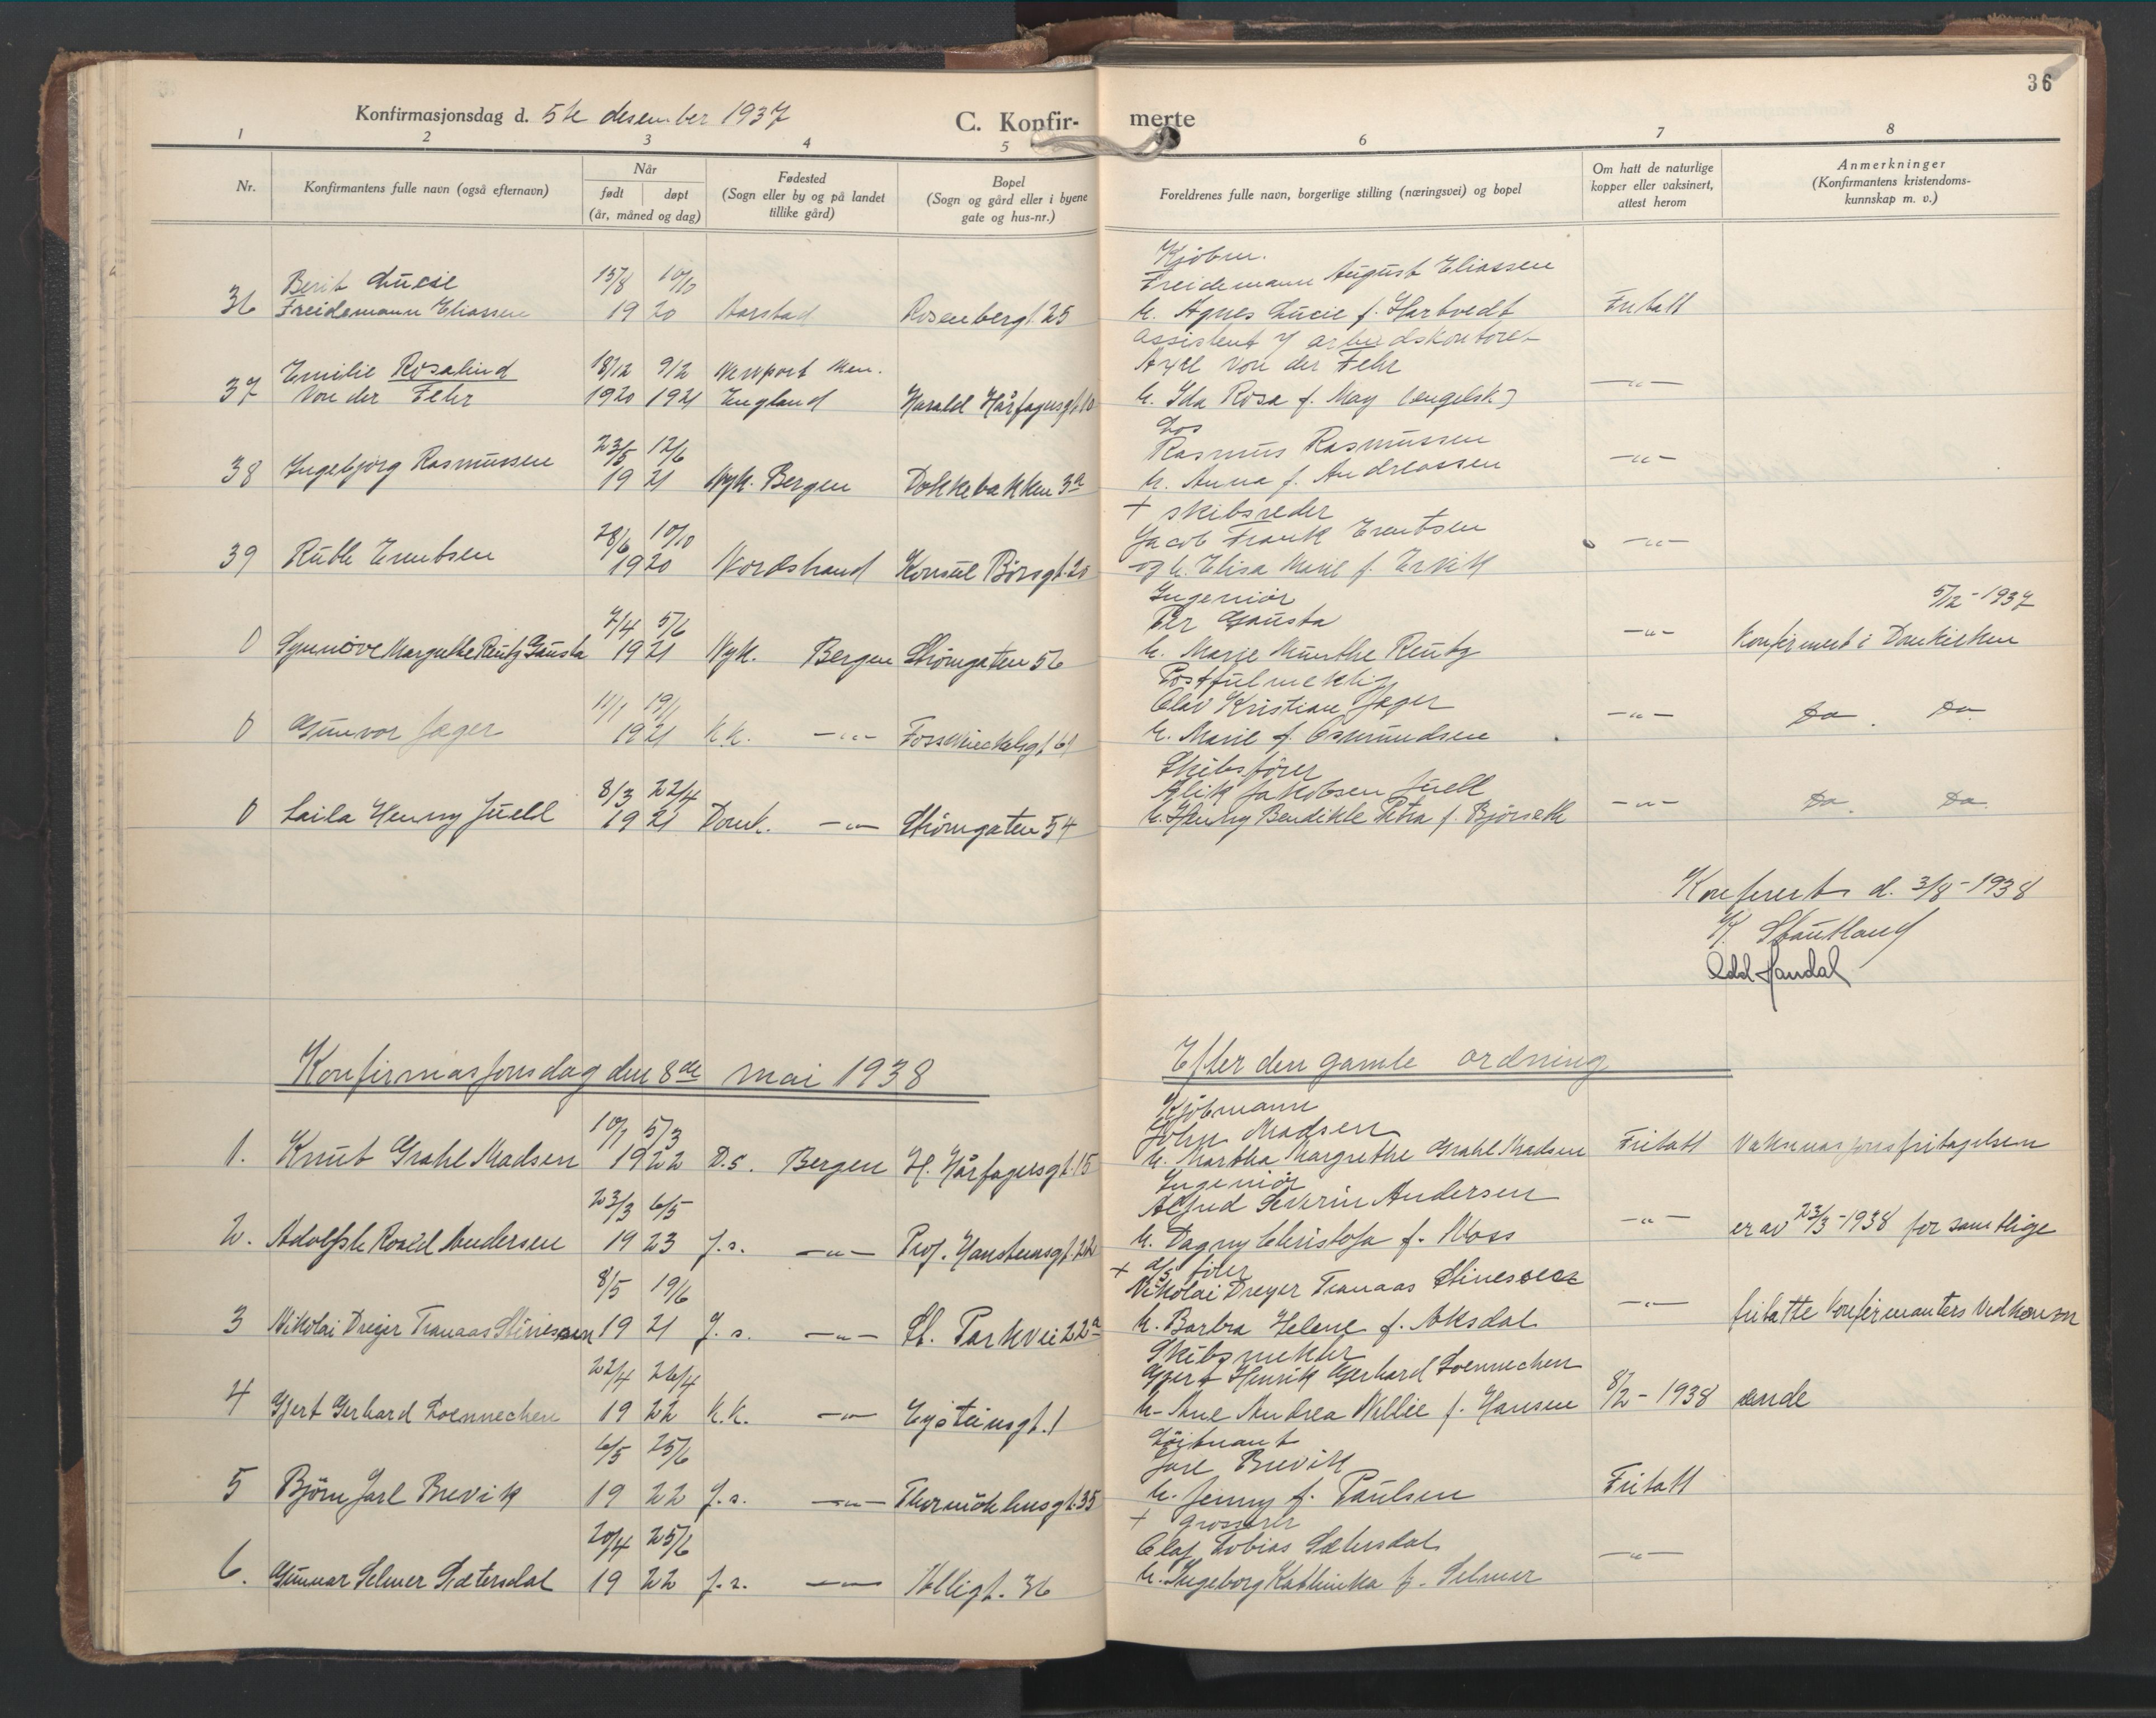 36
Konfirmasjonsdag d. 5te desember 1937
C. Konfir- merte
1 2 3 4 5 6 7 8
Nr.
Konfirmantens fulle navn (også efternavn)
Når
født døpt
(år, måned og dag)
Fødested
(Sogn eller by og på landet
tillike gård)
Bopel
(Sogn og gård eller i byene
gate og hus-nr.)
Foreldrenes fulle navn, borgerlige stilling (næringsvei) og bopel
Om hatt de naturlige
kopper eller vaksinert,
attest herom
Anmerkninger
(Konfirmantens kristendoms-
kunnskap m. v.)
Kjøbm.
Berit Lucie 15/8 10/10 Freidemann August Eliassen
36 Freidemann Eliassen 19 20 Aarstad Rosenbergt. 25 h. Agnes Lucie f. Hartvedt Fritatt
assistent v/ arbeidskontoret
Emilie Rosalind 18/12 9/2 Newport Mon. Axel von der Fehr
37 Von der Fehr 1920 1921 England Harald Hårfagersgt. 10 h. Ida Rosa f. May (engelsk) —"—
Los
23/5 12/6 Rasmus Rasmussen
38 Ingebjørg Rasmussen 19 21 Nyk. Bergen Dokkebakken 3a h. Anna f. Andreassen —"—
+ skibsreder
28/6 10/10 Jacob Frank Erentsen
39 Ruth Erentsen 1920 Nordstrand Konsul Børsgt. 20 og h. Elisa Marie f. Ervik —"—
Ingeniør
7/4 5/6 Per Gausta 5/12-1937
0 Synnøve Margrethe Rentz Gausta 19 21 Nyk. Bergen Strømgaten 56 h. Marie Munthe Rentz —"— Konfirmert i Domkirken
Postfulmektig
11/1 19/1 Olav Kristian Jæger
0 Gunvor Jæger 19 21 K.K. —"— Fosswinckelsgt 61 h. Marie f. Osmundsen —"— Do. Do.
Skibsfører
8/3 22/4 Alik Jakobsen Juell
0 Laila Henny Juell 19 21 Domk. —"— Strømgaten 54 h. Henny Bendikte Petra f. Bjørseth —"— Do. Do.
Konferert d. 3/8-1938
K. Stautland
Odd Handal
Konfirmasjonsdag den 8de mai 1938 Efter den gamle ordning
Kjøbmann
10/1 5/3 John Madsen
1. Knut Grahl Madsen 1922 D.s. Bergen H. Hårfagersgt. 15 h. Martha Margrethe Grahl Madsen Fritatt Vaksinasjonsfritagelsen
Ingeniør
23/3 6/5 Alfred Severin Andersen
2. Adolfsh Roald Andersen 19 23 J.s. —"— Prof. Hansteensgt. 22 h. Dagny Christofa f. Moss —"— er av 23/3-1938 for samtlige
+ d/s fører
8/5 19/6 Nikolai Dreyer Tranaas Stinessen
3 Nikolai Dreyer Tranaas Stinessen 19 21 J.s. —"— St. Parkvei 22a h. Barbra Helene f. Aksdal —"— fritatte konfirmanters vedkom
Skibsmekler
22/4 26/4 Gjert Henrik Gerhard Loennechen
4 Gjert Gerhard Loennechen 19 22 K.K. —"— Eysteinsgt. 1 h. Ane Andrea Nellie f. Hansen 8/2-1938 ende
Løitnant
6/5 25/6 Jarl Brevik
5 Bjørn Jarl Brevik 19 22 J.s. —"— Thormøhlensgt. 35 h. Jenny f. Paulsen Fritatt
+ grosserer
20/4 25/6 Olaf Tobias Sætersdal
6. Gunnar Selmer Sætersdal 19 22 J.s. —"— Welligt. 36 h. Ingeborg Kathinka f. Selmer —"—